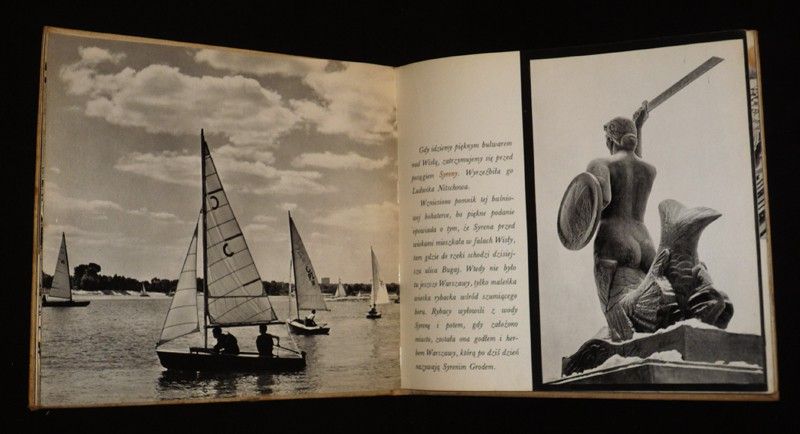 C
C
Gdy idziemy pięknym bulwarem
nad Wisłą, zatrzymujemy się przed
posągiem Syreny. Wyrzeźbiła go
Ludwika Nitschowa.
Wzniesiono pomnik tej baśnio-
wej bohaterce, bo piękne podanie
opowiada o tym, że Syrena przed
wiekami mieszkała w falach Wisły,
tam gdzie do rzeki schodzi dzisiej-
sza ulica Bugaj. Wtedy nie było
tu jeszcze Warszawy, tylko maleńka
wioska rybacka wśród szumiącego
boru. Rybacy wyłowili z wody
Syrenę i potem, gdy założono
miasto, została ona godłem i her-
bem Warszawy, którą po dziś dzień
nazywają Syrenim Grodem.